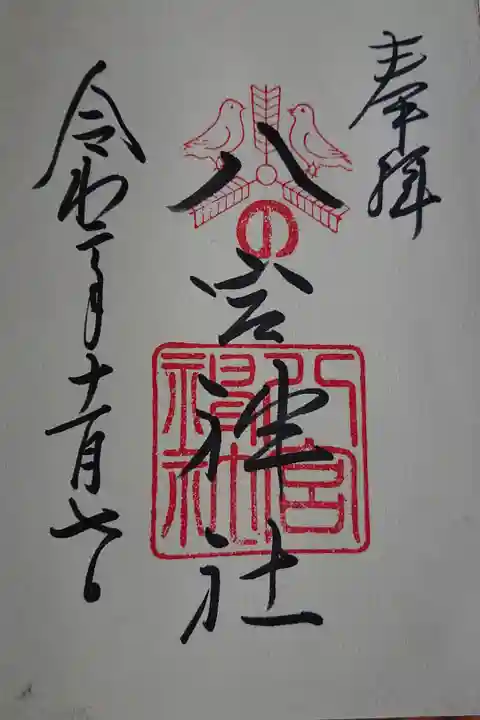 奉拝
八の宮神社
八宮
神社
令和二年十一月七日